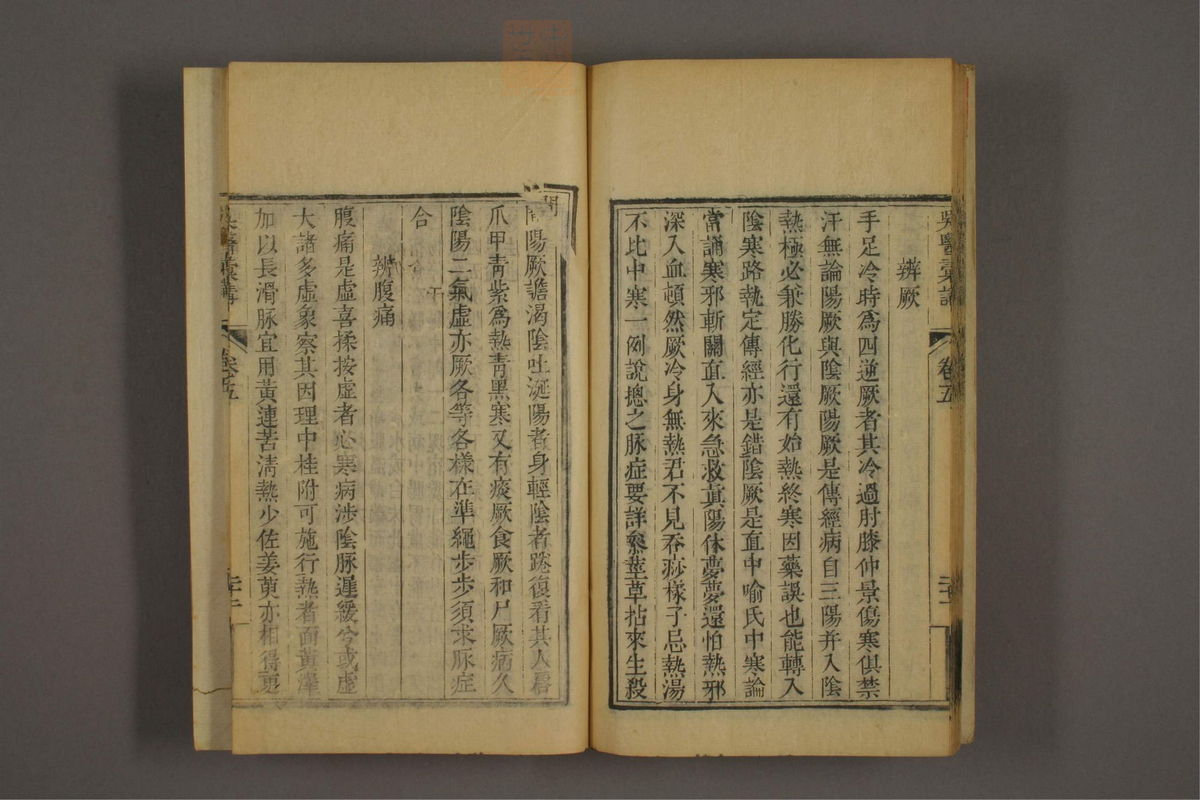 吳醫彙講
卷五
二十一
辨厥
手足冷時爲四逆厥者其冷過肘膝仲景傷寒俱禁
汗無論陽厥與陰厥陽厥是傳經病自三陽并入陰
熱極必兼勝化行還有始熱終寒因藥誤也能轉入
陰寒路執定傳經亦是錯陰厥是直中喻氏中寒論
當誦寒邪斬關直入來急救眞陽休夢夢還怕熱邪
深入血頓然厥冷身無熱君不見吞痧樣子忌熱湯
不比中寒一例說摠之脉症要詳叅莖草拈來生殺
間
陽厥譫渴陰吐涎陽者身輕陰者踡復看其人唇
爪甲靑紫爲熱靑黑寒又有痰厥食厥和尸厥病久
陰陽二氣虛亦厥各等各樣在準繩步步須求脉症
合
辨腹痛
腹痛是虛喜揉按虛者必寒病涉陰脉遲緩兮或虛
大諸多虛象察其因理中桂附可施行熱者面黃澤
加以長滑脉宜用黃連苦淸熱少佐姜萸亦相得更
吳醫彙講
卷五
二十二